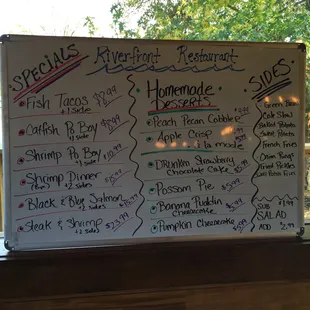 Riverfront Restaurant
SPECIALS
Fish Tacos
+1 side
Catfish Po Boy
+1 side
Shrimp Po Boy
+1 side
Shrimp Dinner
+2 sides
Black & Bleu Salmon
+2 sides
Steak & Shrimp
+2 sides $23.99
Homemade
Desserts
Peach Pecan Cobbler
Apple Crisp
a'la mode
Drunken Strawberry
Chocolate Cake $5.99
Possum Pie $5.99
Banana Puddin
Cheesecake $5.99
Pumpkin Cheesecake
SIDES
Green Beans
Cole Slaw
Baked Potato
Sweet Potato
French Fries
Onion Rings
Fried Pickles
SUB $1.99
SALAD
ADD $2.99